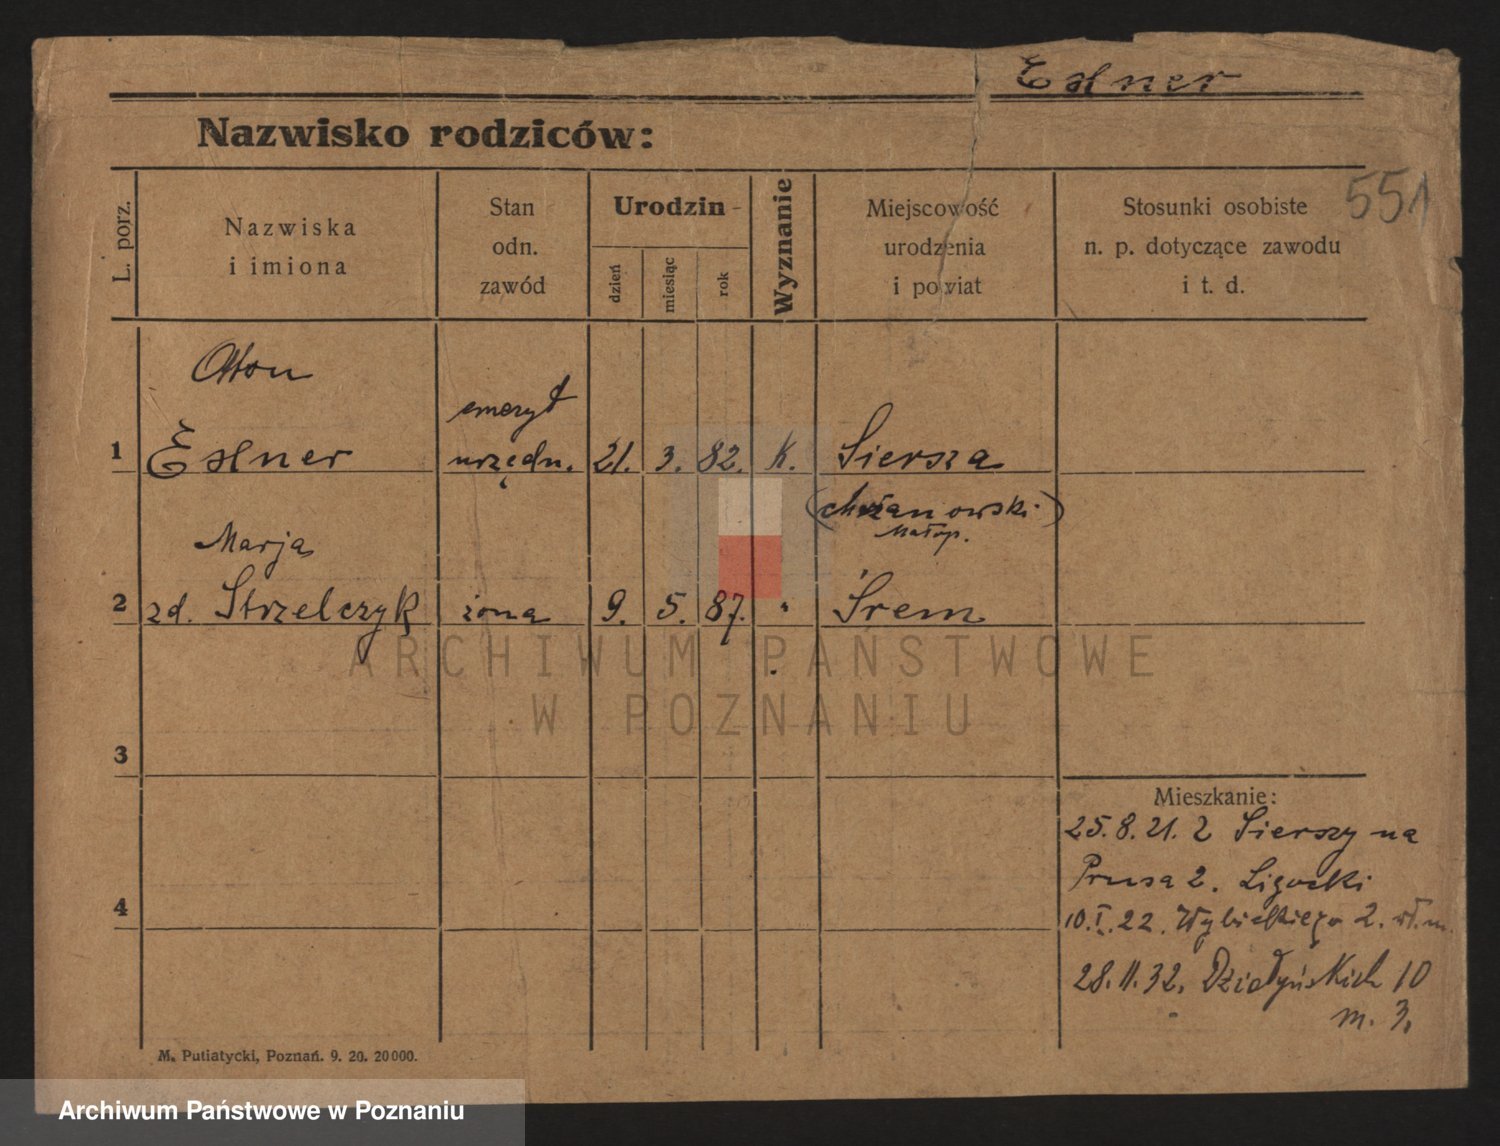 Exner
Nazwisko rodziców:
551
L. porz.
Nazwiska
i imiona
Stan
odn.
zawód
Urodzin
dzień
miesiąc
rok
Wyznanie
Miejscowość
urodzenia
i powiat
Stosunki osobiste
n. p. dotyczące zawodu
i t. d.
Otton
emeryt
1 Exner urzędn. 21. 3. 82. K. Siersza
(chrzanowski)
Małop.
Marja
2 zd. Strzelczyk żona 9. 5. 87. " Śrem
ARCHIWUM PAŃSTWOWE
W POZNANIU
3
Mieszkanie:
25.8.21. z Sierszy na
Prusa 2. Ligocki
4
10.I.22. Wybickiego 2. wł.m.
28.11.32. Działyńskich 10
m. 3.
M. Putiatycki, Poznań. 9. 20. 20000.
Archiwum Państwowe w Poznaniu